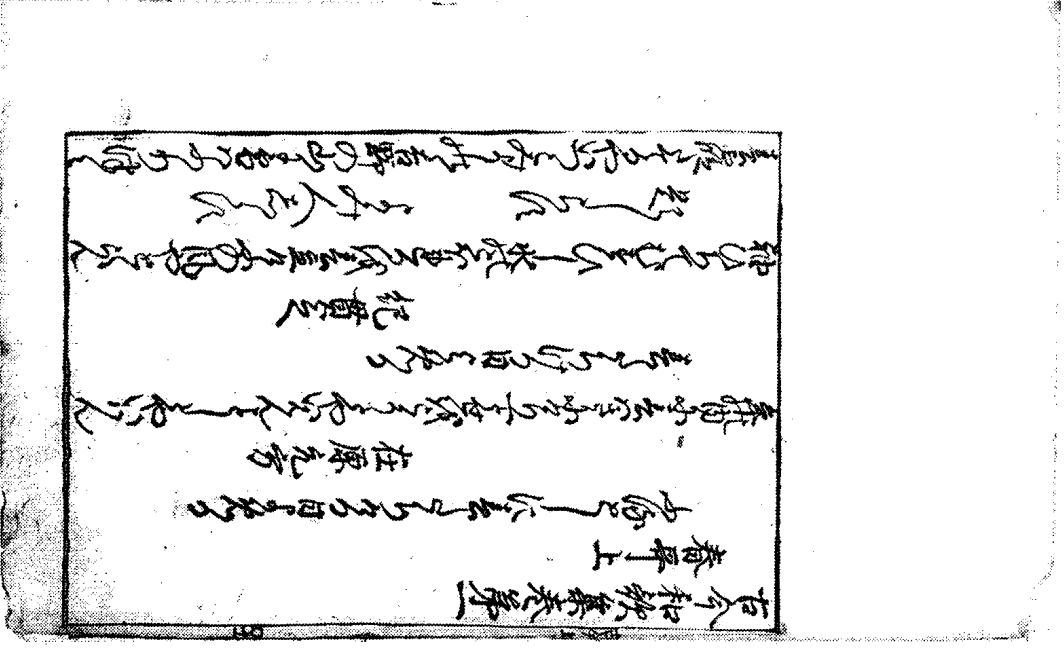 古今和歌集巻第一
春哥上
ふるとしに春たちける日よめる
在原元方
年の内に春はきにけり一とせをこそとやいはんことしとやいはん
春たちける日よめる
紀貫之
袖ひちてむすひし水のこほれるを春立けふの風やとくらん
題しらす　よみ人しらす
春霞たてるやいつこみよしのゝ